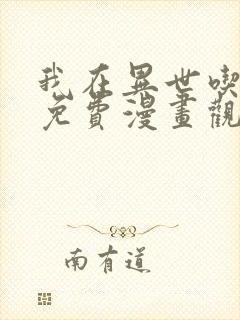 我在異世喫
免費漫畫觀
南有道